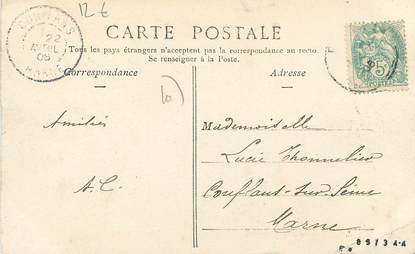 12 €
CARTE POSTALE
Tous les pays étrangers n'acceptent pas la correspondance au recto.
Se renseigner à la Poste.
Correspondance
Adresse
22
AVRIL
05
MARNE
5
10
Amitiés
A.C.
Mademoiselle
Lucie Thonnelier
Conflans-sur-Seine
Marne
89734A